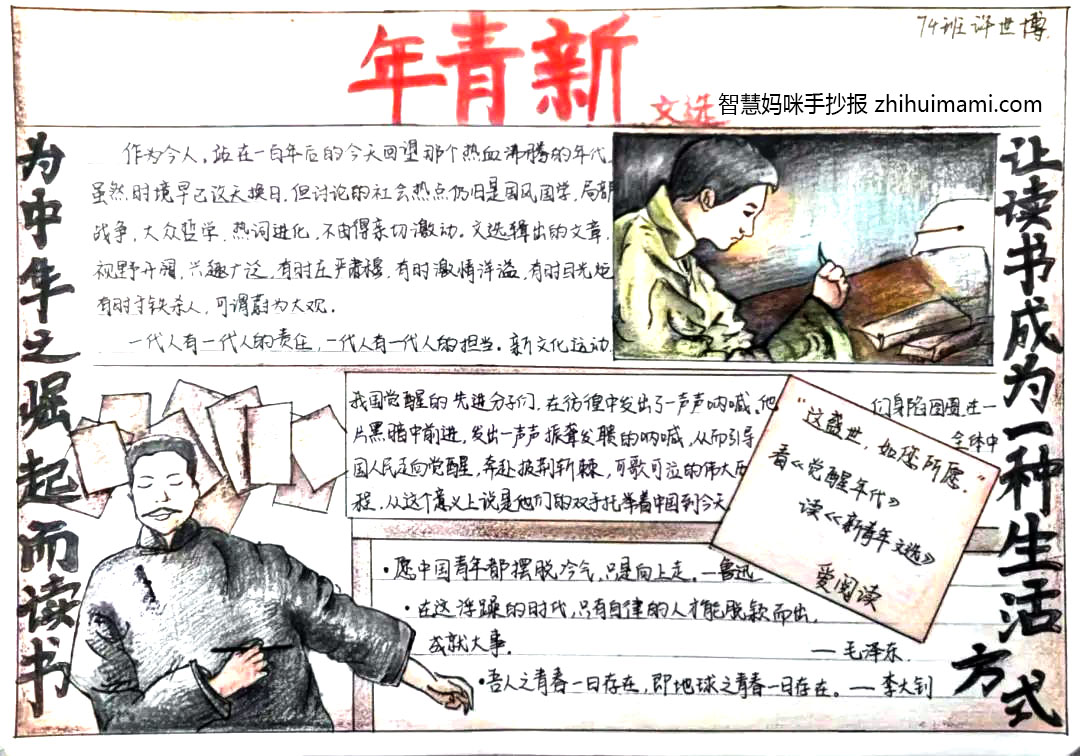 74班许世博
年青新
文选
智慧妈咪手抄报 zhihuimami.com
为中华之崛起而读书
作为今人，站在一百年后的今天回望那个热血沸腾的年代，
虽然时境早已改天换日，但讨论的社会热点仍旧是国风国学，局部
战争，大众哲学，热词进化，不由得亲切激动。文选辑出的文章，
视野开阔，兴趣广泛，有时庄严肃穆，有时激情洋溢，有时目光炮
有时寸铁杀人，可谓蔚为大观。
一代人有一代人的责任，一代人有一代人的担当。新文化运动
我国觉醒的先进分子们，在彷徨中发出了一声声呐喊，他
们身陷囹圄，在一
片黑暗中前进，发出一声声振聋发聩的呐喊，从而引导
全体中
国人民走向觉醒，奔赴披荆斩棘，可歌可泣的伟大历
程，从这个意义上说是他们的双手托举着中国到今天
“这盛世，如您所愿。”
看《觉醒年代》
读《新青年文选》
爱阅读
•愿中国青年都摆脱冷气，只是向上走。—鲁迅
•在这浮躁的时代，只有自律的人才能脱颖而出，
成就大事。
—毛泽东
•吾人之青春一日存在，即地球之青春一日存在。—李大钊
让读书成为一种生活方式